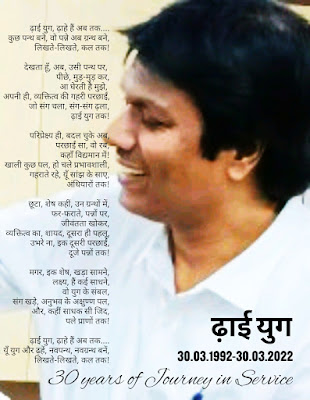 ढ़ाई युग, ढ़ाहे हैं अब तक....
कुछ पन्थ बने, वो पन्ने अब ग्रन्थ बने,
लिखते-लिखते, कल तक!
देखता हूँ, अब, उसी पन्थ पर,
पीछे, मुड़-मुड़ कर,
आ घेरती है मुझे,
अपनी ही, व्यक्तित्व की गहरी परछाईं,
जो संग चला, संग-संग ढ़ला,
ढ़ाई युग तक!
परिप्रेक्ष्य ही, बदल चुके अब,
परछाईं सा, वो रब,
कहाँ विद्यमान में!
खाली कुछ पल, हो चले प्रभावशाली,
गहराते रहे, यूँ सांझ के साए,
अंधियारों तक!
छूटा, शेष कहीं, उन ग्रंथों में,
फर-फराते, पन्नों पर,
जीवंतता खोकर,
व्यक्तित्व का, शायद, दूसरा ही पहलू,
उभरे ना, इक दूसरी परछाईं,
दूजे पन्नों तक!
मगर, इक शेष, खड़ा सामने,
लक्ष्य, हैं कई साधने,
वो युग के संबल,
संग खड़े, अनुभव के अक्षुण्ण पल,
और, कहीं साधक सी जिद,
पले प्राणों तक!
ढ़ाई युग, ढ़ाहे हैं अब तक....
यूँ युग और ढ़हें, नवपन्थ, नवग्रन्थ बनें,
लिखते-लिखते, कल तक!
ढ़ाई युग
30.03.1992-30.03.2022
30 years of Journey in Service